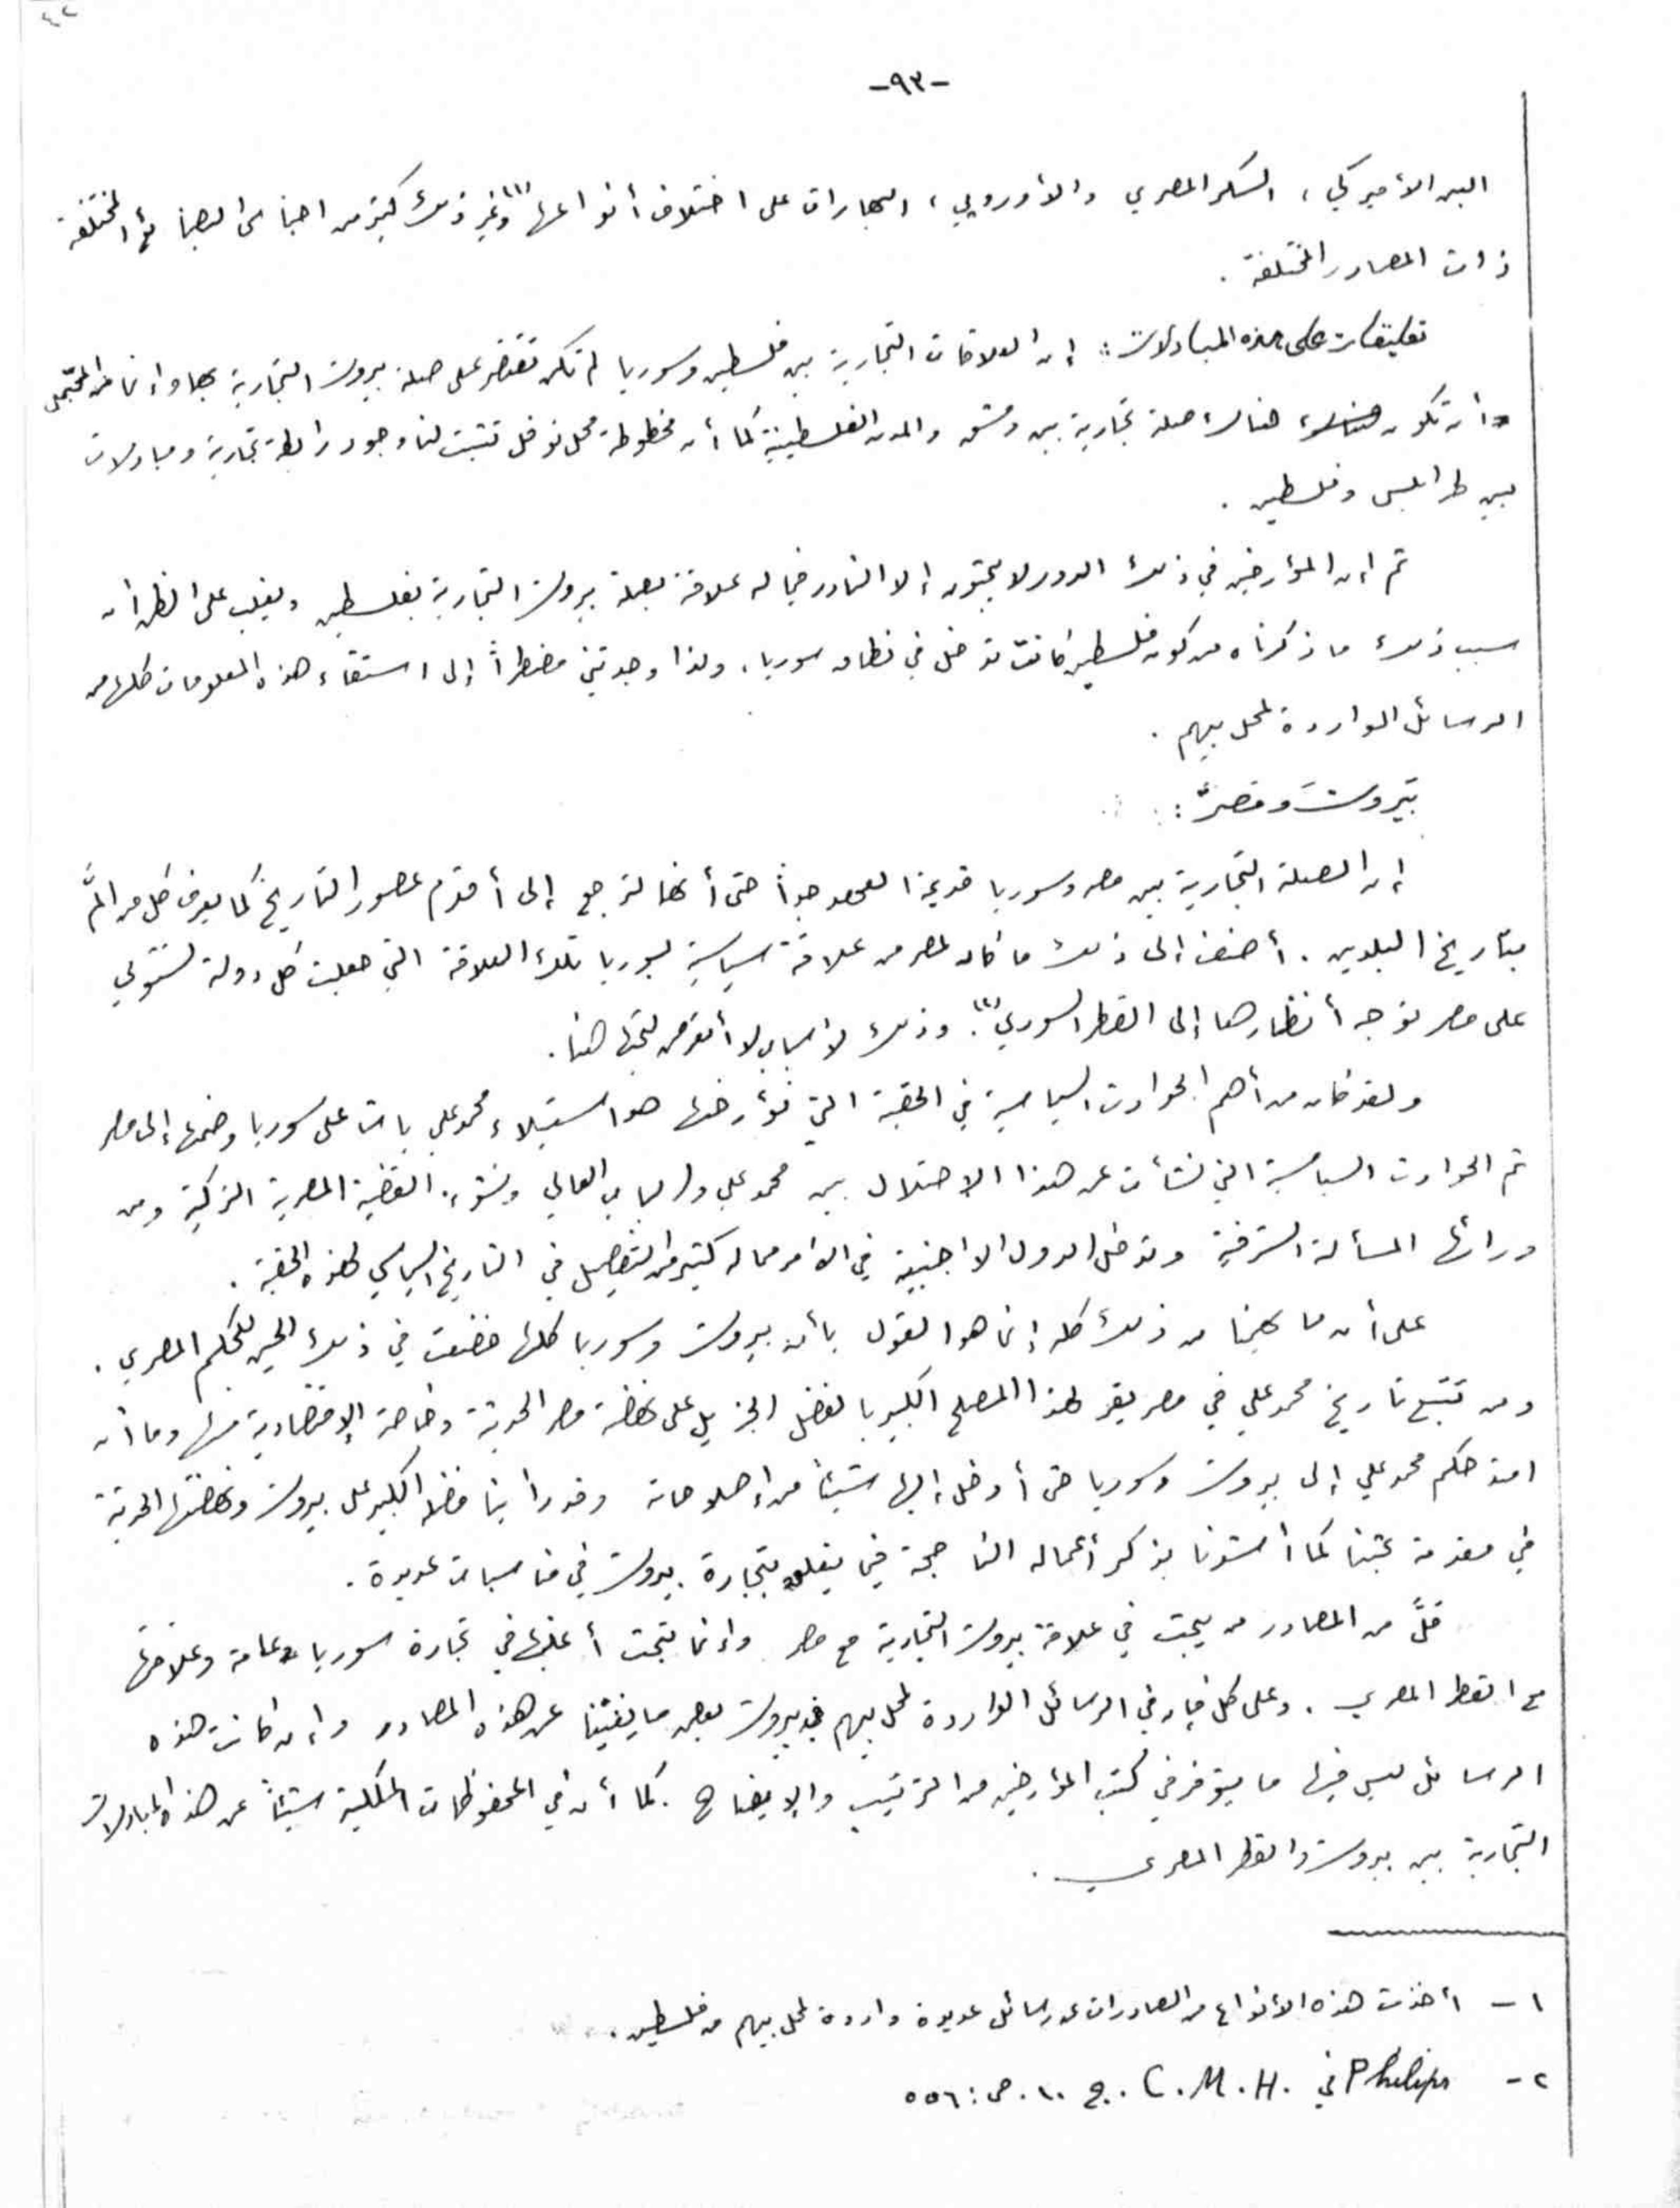 -٩٣-
البن الأميركي، السكر المصري والأوروبي، البهارات على اختلاف أنواعها(١) وغير ذلك كثير من اجناس البضائع المختلفة
ذات المصادر المختلفة.
تعليقات على هذه المبادلات: إن العلاقات التجارية بين فلسطين وسوريا لم تكن تقتصر على صلة بيروت التجارية بها وإنما من المحتمل
أن تكون هناك صلة تجارية بين دمشق والمدن الفلسطينية كما أن مخطوطة محل نوفل تثبت لنا وجود رابطة تجارية ومبادلات
بين طرابلس وفلسطين.
ثم إن المؤرخين في ذلك الدور لا يبحثون إلا النادر فيما له علاقة بصلة بيروت التجارية بفلسطين ويغلب على الظن أن
سبب ذلك ما ذكرناه من كون فلسطين كانت تدخل في نطاق سوريا. ولذا وجدتني مضطراً إلى استقاء هذه المعلومات كلها من
الرسائل الواردة لمحل بيهم.
بيروت ومصر:
إن الصلة التجارية بين مصر وسوريا قديمة العهد جداً حتى أنها لترجع إلى أقدم عصور التاريخ كما يعرف كل من ألمَّ
بتاريخ البلدين. أضف إلى ذلك ما كان لمصر من علاقة سياسية بسوريا تلك العلاقة التي جعلت كل دولة تستولي
على مصر توجه أنظارها إلى القطر السوري(٢). وذلك لأسباب لا أتعرض لبحثها هنا.
ولقد كان من أهم الحوادث السياسية في الحقبة التي نؤرخها هو استيلاء محمد علي باشا على سوريا وضمها إلى مصر
ثم الحوادث السياسية التي نشأت عن هذا الاحتلال بين محمد علي والباب العالي ونشوء القضية المصرية التركية ومن
ورائها المسألة الشرقية وتدخل الدول الاجنبية في الامر مما له كثير من التفصيل في التاريخ السياسي لهذه الحقبة.
على أن ما يهمنا من ذلك كله إنما هو القول بأن بيروت وسوريا كلها خضعت في ذلك الحين للحكم المصري.
ومن تتبع تاريخ محمد علي في مصر يقر لهذا المصلح الكبير بالفضل الجزيل على نهضة مصر الحديثة وخاصة الإقتصادية منها وما أن
امتد حكم محمد علي إلى بيروت وسوريا حتى أدخل إليها شيئاً من إصلاحاته وقد رأينا فضله الكبير على بيروت ونهضتها الحديثة
في مقدمة بحثنا كما أشدنا بذكر أعماله الناجحة فيما يتعلق بتجارة بيروت في مناسبات عديدة.
قلَّ من المصادر من يبحث في علاقة بيروت التجارية مع مصر وإنما تبحث أغلبها في تجارة سوريا عامة وعلاقتها
مع القطر المصري. وعلى كل فإن في الرسائل الواردة لمحل بيهم في بيروت بعض ما يغنينا عن هذه المصادر وإن كانت هذه
الرسائل ليس فيها ما يتوفر في كتب المؤرخين من الترتيب والإيضاح. كما أن في المحفوظات الملكية شيئاً عن هذه المبادلات
التجارية بين بيروت والقطر المصري.
١ - أخذت هذه الأنواع من الصادرات عن رسائل عديدة واردة لمحل بيهم من فلسطين.
٢ - Philips في C.M.H. ج. ١٠. ص: ٥٥٦